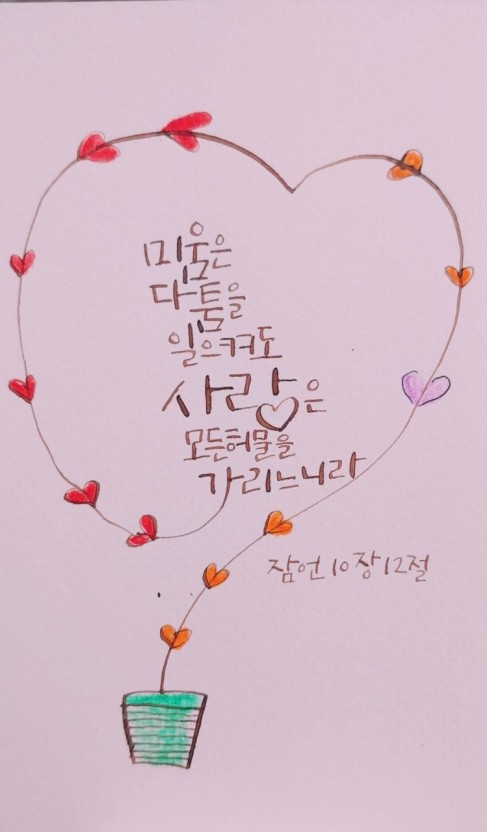 미움은
다툼을
일으켜도
사랑은
모든허물을
가리느니라
잠언 10장 12절